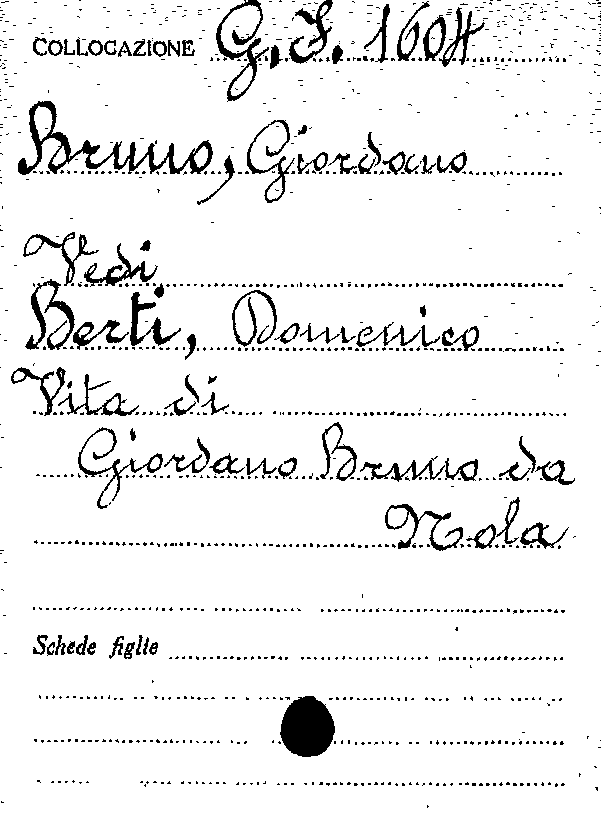 COLLOCAZIONE G. S. 1604
Bruno, Giordano
Vedi
Berti, Domenico
Vita di
Giordano Bruno da
Nola
Schede figlie